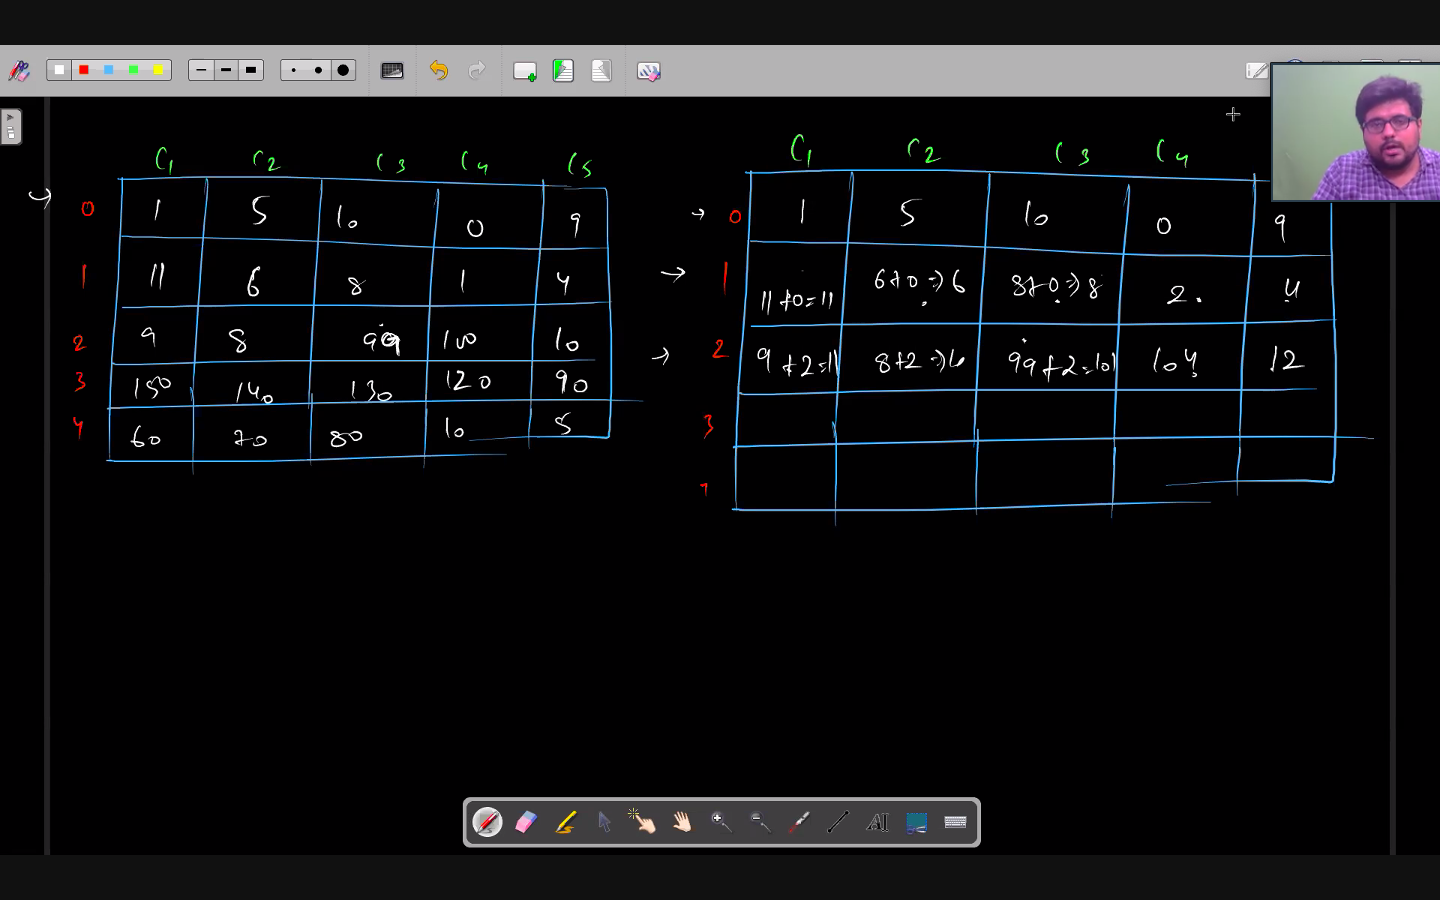 C1 C2 C3 C4 C5
0 1 5 10 0 9
1 11 6 8 1 4
2 9 8 99 100 10
3 150 140 130 120 90
4 60 70 80 10 5
C1 C2 C3 C4
0 1 5 10 0 9
1 11+0=11 6+0=>6 8+0=>8 2. 4
2 9+2=11 8+2=>10 99+2=101 104 12
3
AI